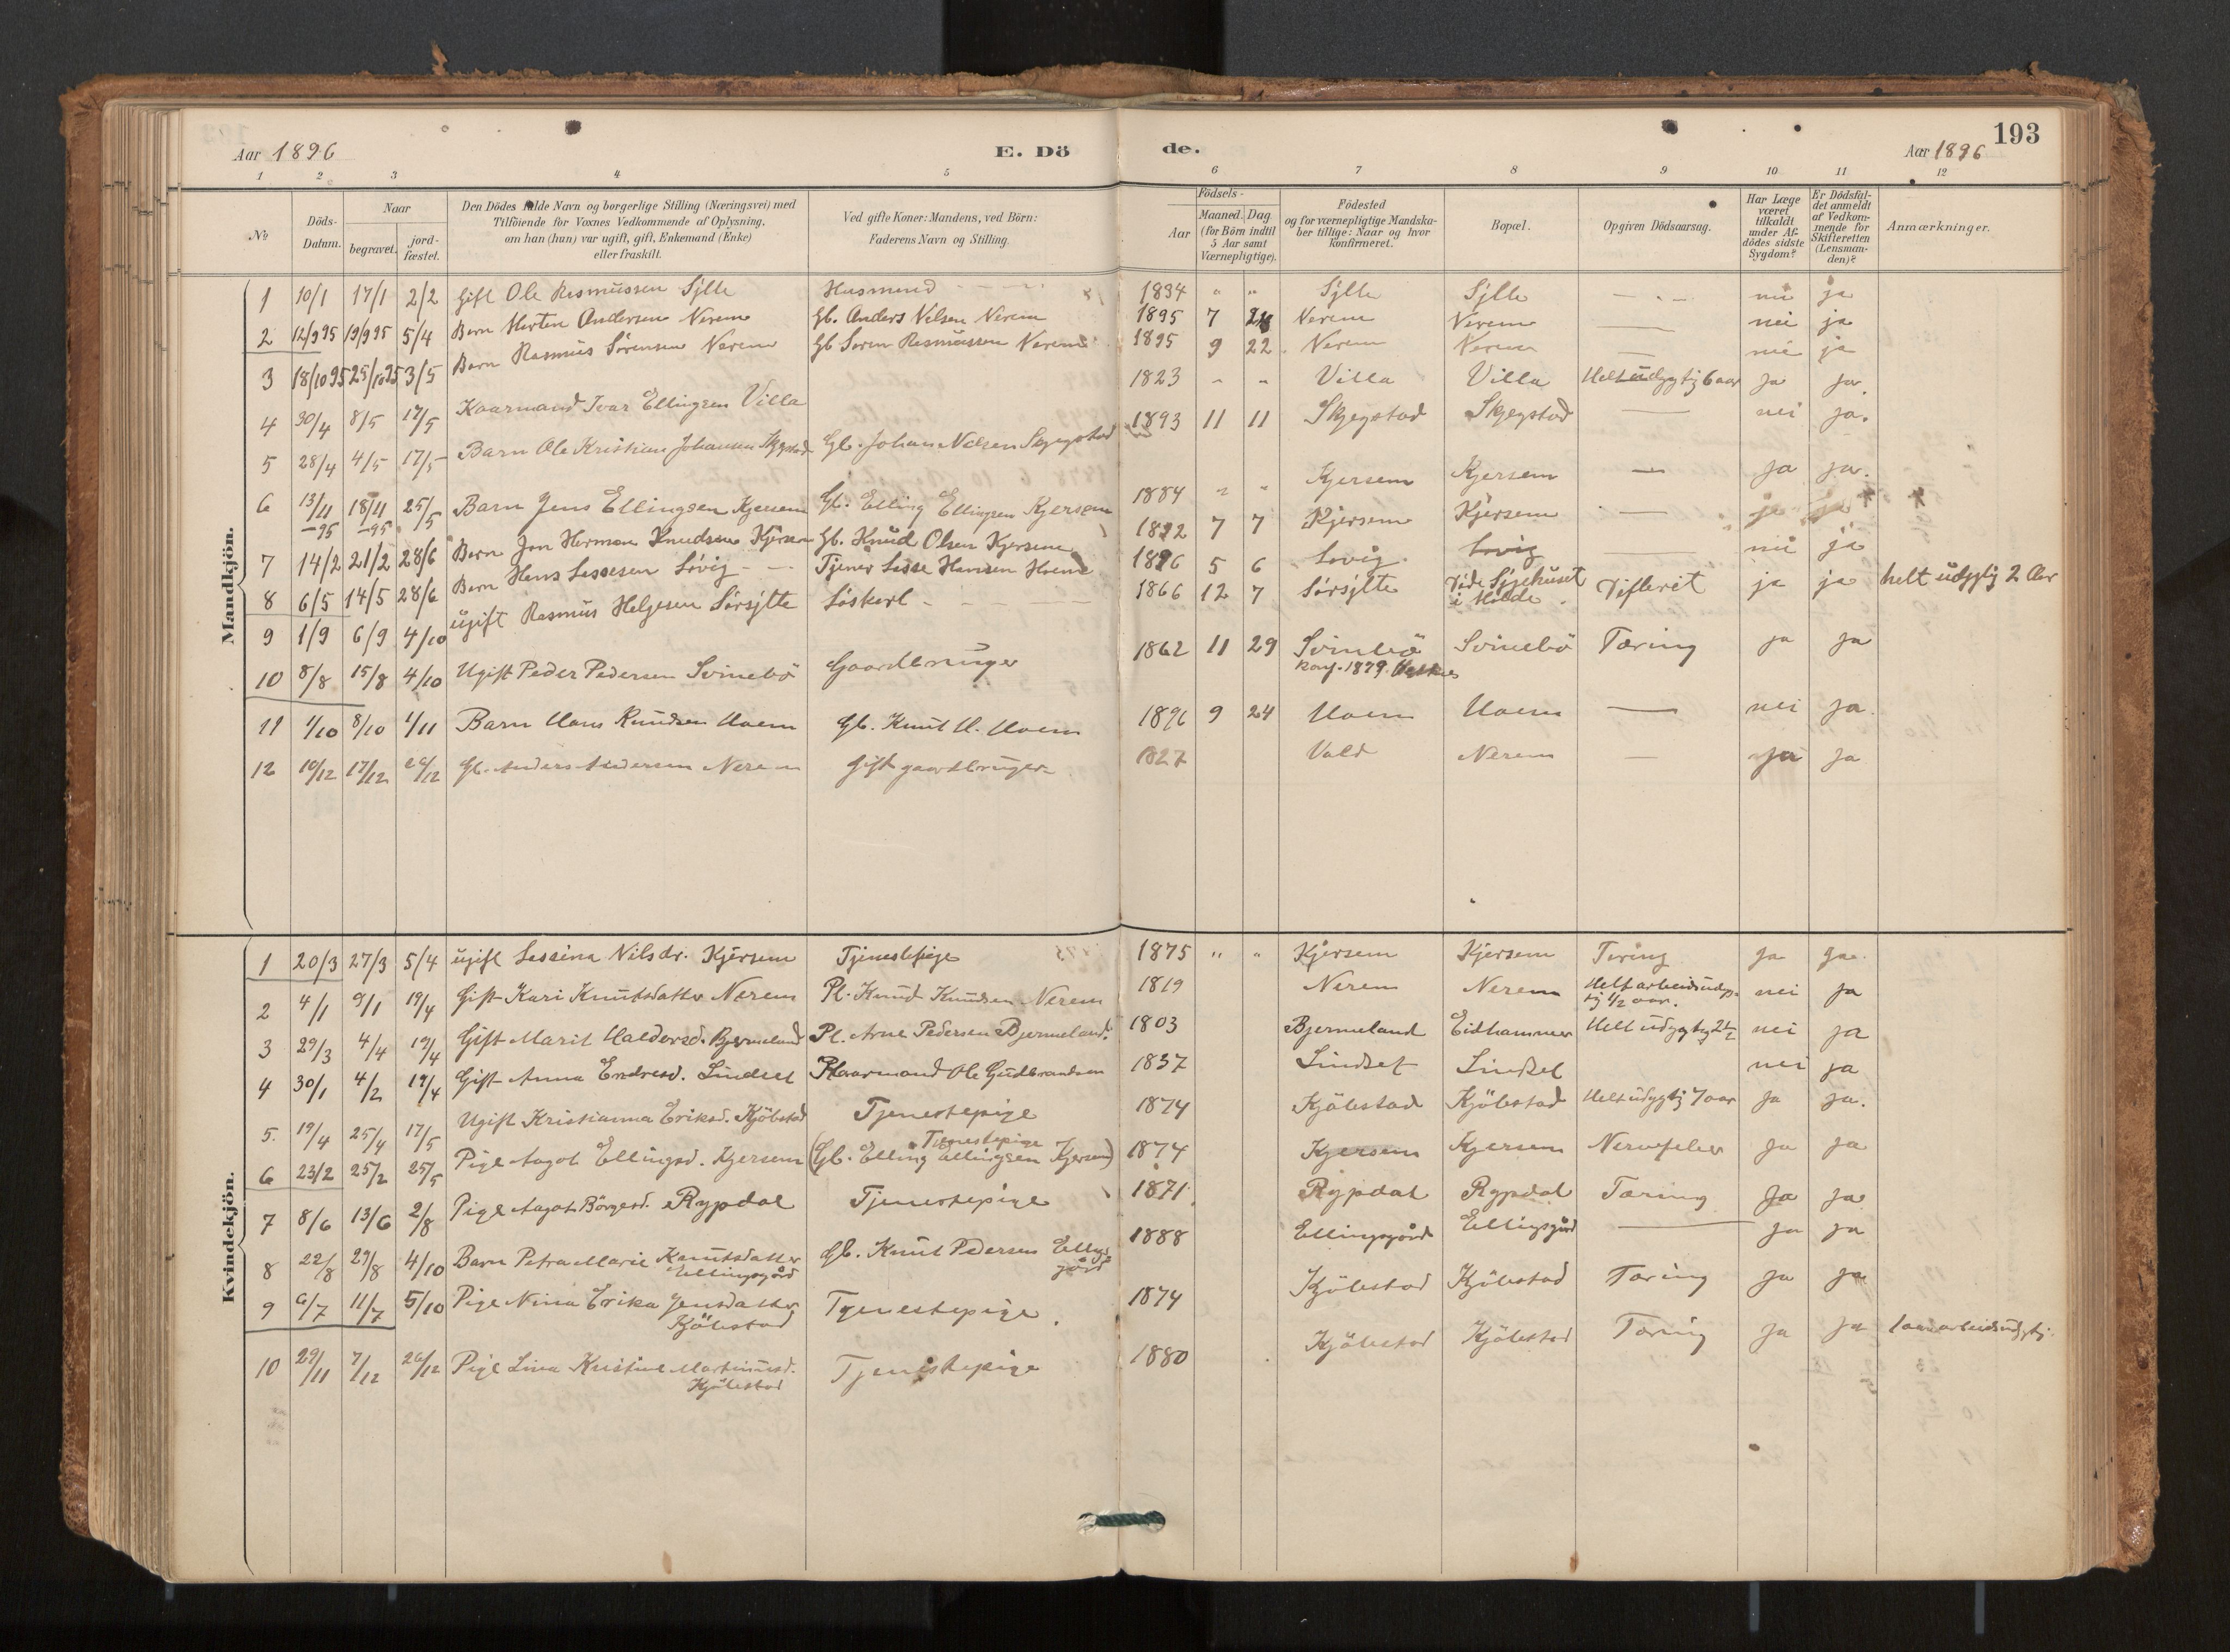 Aar 1896
E. Dö
de.
Aar 1896
193
1 2 3 4 5 6 7 8 9 10 11 12
№
Döds-Datum.
Naar
begravet.
jord-fæstet.
Den Dödes fulde Navn og borgerlige Stilling (Næringsvei) med
Tilföiende for Voxnes Vedkommende af Oplysning,
om han (hun) var ugift, gift, Enkemand (Enke)
eller fraskilt.
Ved gifte Koner: Mandens, ved Börn:
Faderens Navn og Stilling.
Födsels-
Aar
Maaned.
Dag
(for Börn indtil
5 Aar samt
Værnepligtige).
Födested
og for værnepligtige Mandska-
ber tillige: Naar og hvor
konfirmeret.
Bopæl.
Opgiven Dödsaarsag.
Har Læge
været
tilkaldt
under Af-
dödes sidste
Sygdom?
Er Dödsfal-
det anmeldt
af Vedkom-
mende for
Skifteretten
(Lensman-
den)?
Anmærkninger.
Mandkjön.
1 10/1 17/1 2/2 Gift Ole Rasmussen Sylte Husmand 1834 " " Sylte Sylte — " — nei ja
2 12/9 95 19/9 95 5/4 Barn Morten Andersen Nerem Gb. Anders Nilsen Nerem 1895 7 Nerem Nerem — nei ja
3 18/10 95 25/10 95 3/5 Barn Rasmus Sörensen Nerem Gb Soren Rasmussen Nerem 1895 9 22 Nerem Nerem — nei ja
4 30/4 8/5 17/5 Kaarmand Ivar Ellingsen Villa 1823 " " Villa Villa Helt udygtig 6 aar ja ja.
5 28/4 4/5 17/5 Barn Ole Kristian Johansen Skjegstad Gb. Johan Nielsen Skjegstad 1893 11 11 Skjegstad Skjegstad — nei ja.
6 13/11 -95 18/11 -95 25/5 Barn Jens Ellingsen Kjersem Gb. Elling Ellingsen Kjersem 1884 " " Kjersem Kjersem — ja ja.
7 14/2 21/2 28/6 Barn Jon Herman Knudsen Kjersem Gb. Knud Olsen Kjersem 1892 7 7 Kjersem Kjersem — ja ja
8 6/5 14/5 28/6 Barn Hans Lassesen Sövig Tjener Lasse Hansen Hoem 1896 5 6 Sovig Sovig — nei ja
9 1/9 6/9 4/10 ugift Rasmus Helgesen Sörsylte Löskarl 1866 12 7 Sörsylte Vide Sygehuset i Molde Difterit ja ja helt udygtig 2 Aar
10 8/8 15/8 4/10 Ugift Peder Pedersen Svinebö Gaardbruger 1862 11 29 Svinebö Svinebö Tæring ja ja
konf. 1879.
11 1/10 8/10 1/11 Barn Hans Knudsen Hoem Gb. Knut H. Hoem 1896 9 24 Hoem Hoem — nei ja
12 10/12 17/12 26/12 Gb. Anders Andersen Nerem Gift gaardbruger 1827 Vold Nerem — ja ja
Kvindekjön.
1 20/3 27/3 5/4 ugift Lassina Nilsdr. Kjersem Tjenestepige 1875 " " Kjersem Kjersem Tæring ja ja.
2 4/1 9/1 19/4 Gift Kari Knutsdatter Nerem Pl. Knud Knudsen Nerem 1819 Nerem Nerem Helt arbeidsudyg-
tig 1/2 aar. nei ja
3 29/3 4/4 19/4 Gift Marit Haldorsd. Bjermeland Pl. Arne Pedersen Bjermeland. 1803 Bjermeland Eidhammer Helt udygtig 2 1/2 nei ja
4 30/1 4/2 19/4 Gift Anna Endresd. Lindset Kaarmand Ole Gudbrandsen 1837 Lindset Lindset nei ja
5. 19/4 25/4 17/5 Ugift Kristianna Eriksd. Kjöbstad Tjenestepige 1874 Kjöbstad Kjöbstad Helt udygtig 7 aar ja ja.
6 23/2 25/2 25/5 Pige Aagot Ellingsd. Kjersem Tjenestepige (Gb. Elling Ellingsen Kjersem) 1874 Kjersem Kjersem Nervefeber ja ja
7 8/6 13/6 2/8 Pige Aagot Börgesd. Rypdal Tjenestepige 1871 Rypdal Rypdal Tæring ja ja
8 22/8 29/8 4/10 Barn Petra Marie Knutsdatter
Ellingsgård Gb. Knut Pedersen Ellings
gård 1888 Ellingsgård Ellingsgård — ja ja
9 6/7 11/7 5/10 Pige Nina Erika Jensdatter
Kjöbstad Tjenestepige. 1874 Kjöbstad Kjöbstad Tæring ja ja
10 29/11 7/12 26/12 Pige Lina Kristine Martinusd.
Kjöbstad Tjenestepige 1880 Kjöbstad Kjöbstad Tæring ja ja 1 aar arbeidsudygtig.